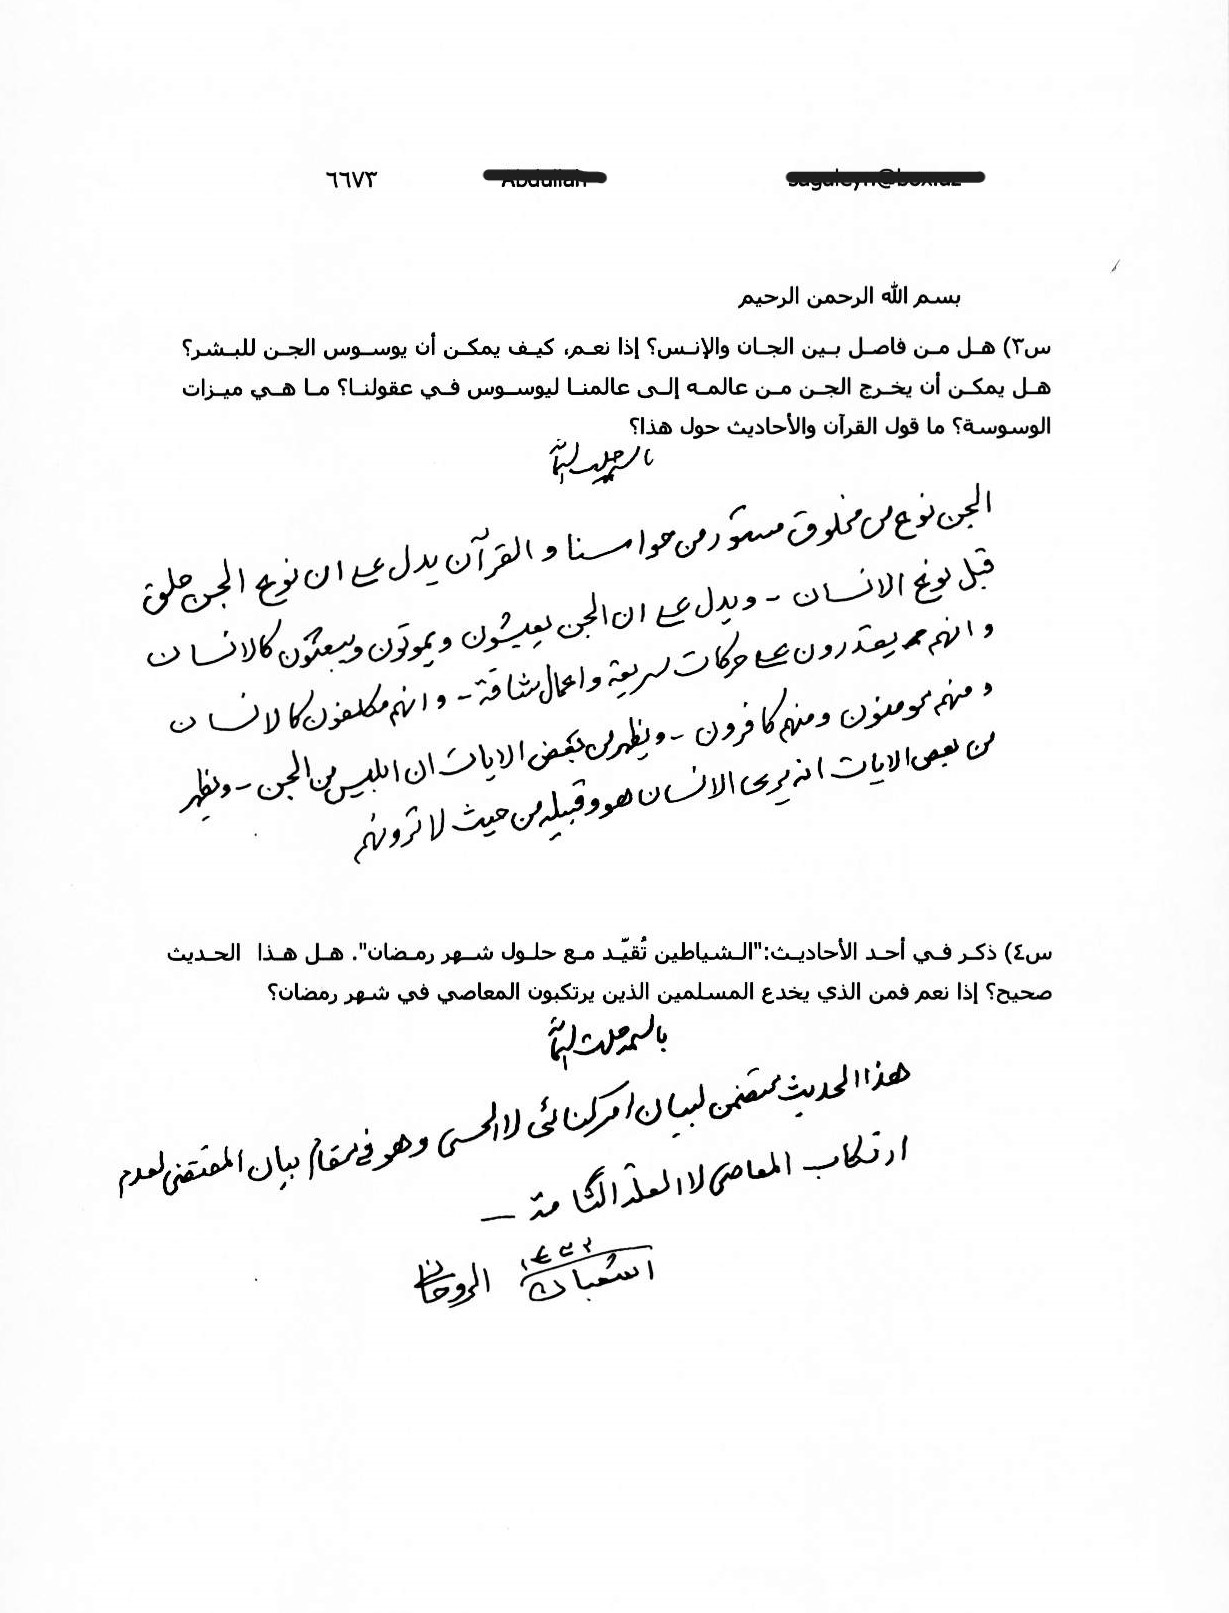 ٦٦٧٣
بسم الله الرحمن الرحيم
س٣) هل من فاصل بين الجان والإنس؟ إذا نعم، كيف يمكن أن يوسوس الجن للبشر؟
هل يمكن أن يخرج الجن من عالمه إلى عالمنا ليوسوس في عقولنا؟ ما هي ميزات
الوسوسة؟ ما قول القرآن والأحاديث حول هذا؟
باسمه جلت اسمائه
الجن نوع من مخلوق مستور من حواسنا و القرآن يدل على ان نوع الجن خلق
قبل نوع الانسان - ويدل على ان الجن يعيشون ويموتون ويبعثون كالانسان
و انهم يقدرون على حركات سريعة و اعمال شاقة - و انهم مكلفون كالانسان
ومنهم مومنون ومنهم كافرون - ويظهر من بعض الايات ان ابليس من الجن - ويظهر
من بعض الايات انه يرى الانسان هو وقبيله من حيث لا ترونهم
س٤) ذكر في أحد الأحاديث:"الشياطين تُقيّد مع حلول شهر رمضان". هل هذا الحديث
صحيح؟ إذا نعم فمن الذي يخدع المسلمين الذين يرتكبون المعاصي في شهر رمضان؟
باسمه جلت اسمائه
هذا الحديث متضمن لبيان امر كنائى لا الحسى وهو في مقام بيان المقتضى لعدم
ارتكاب المعاصى لا العلة التامة -
١ شعبان ١٤٣٢ الروحانى